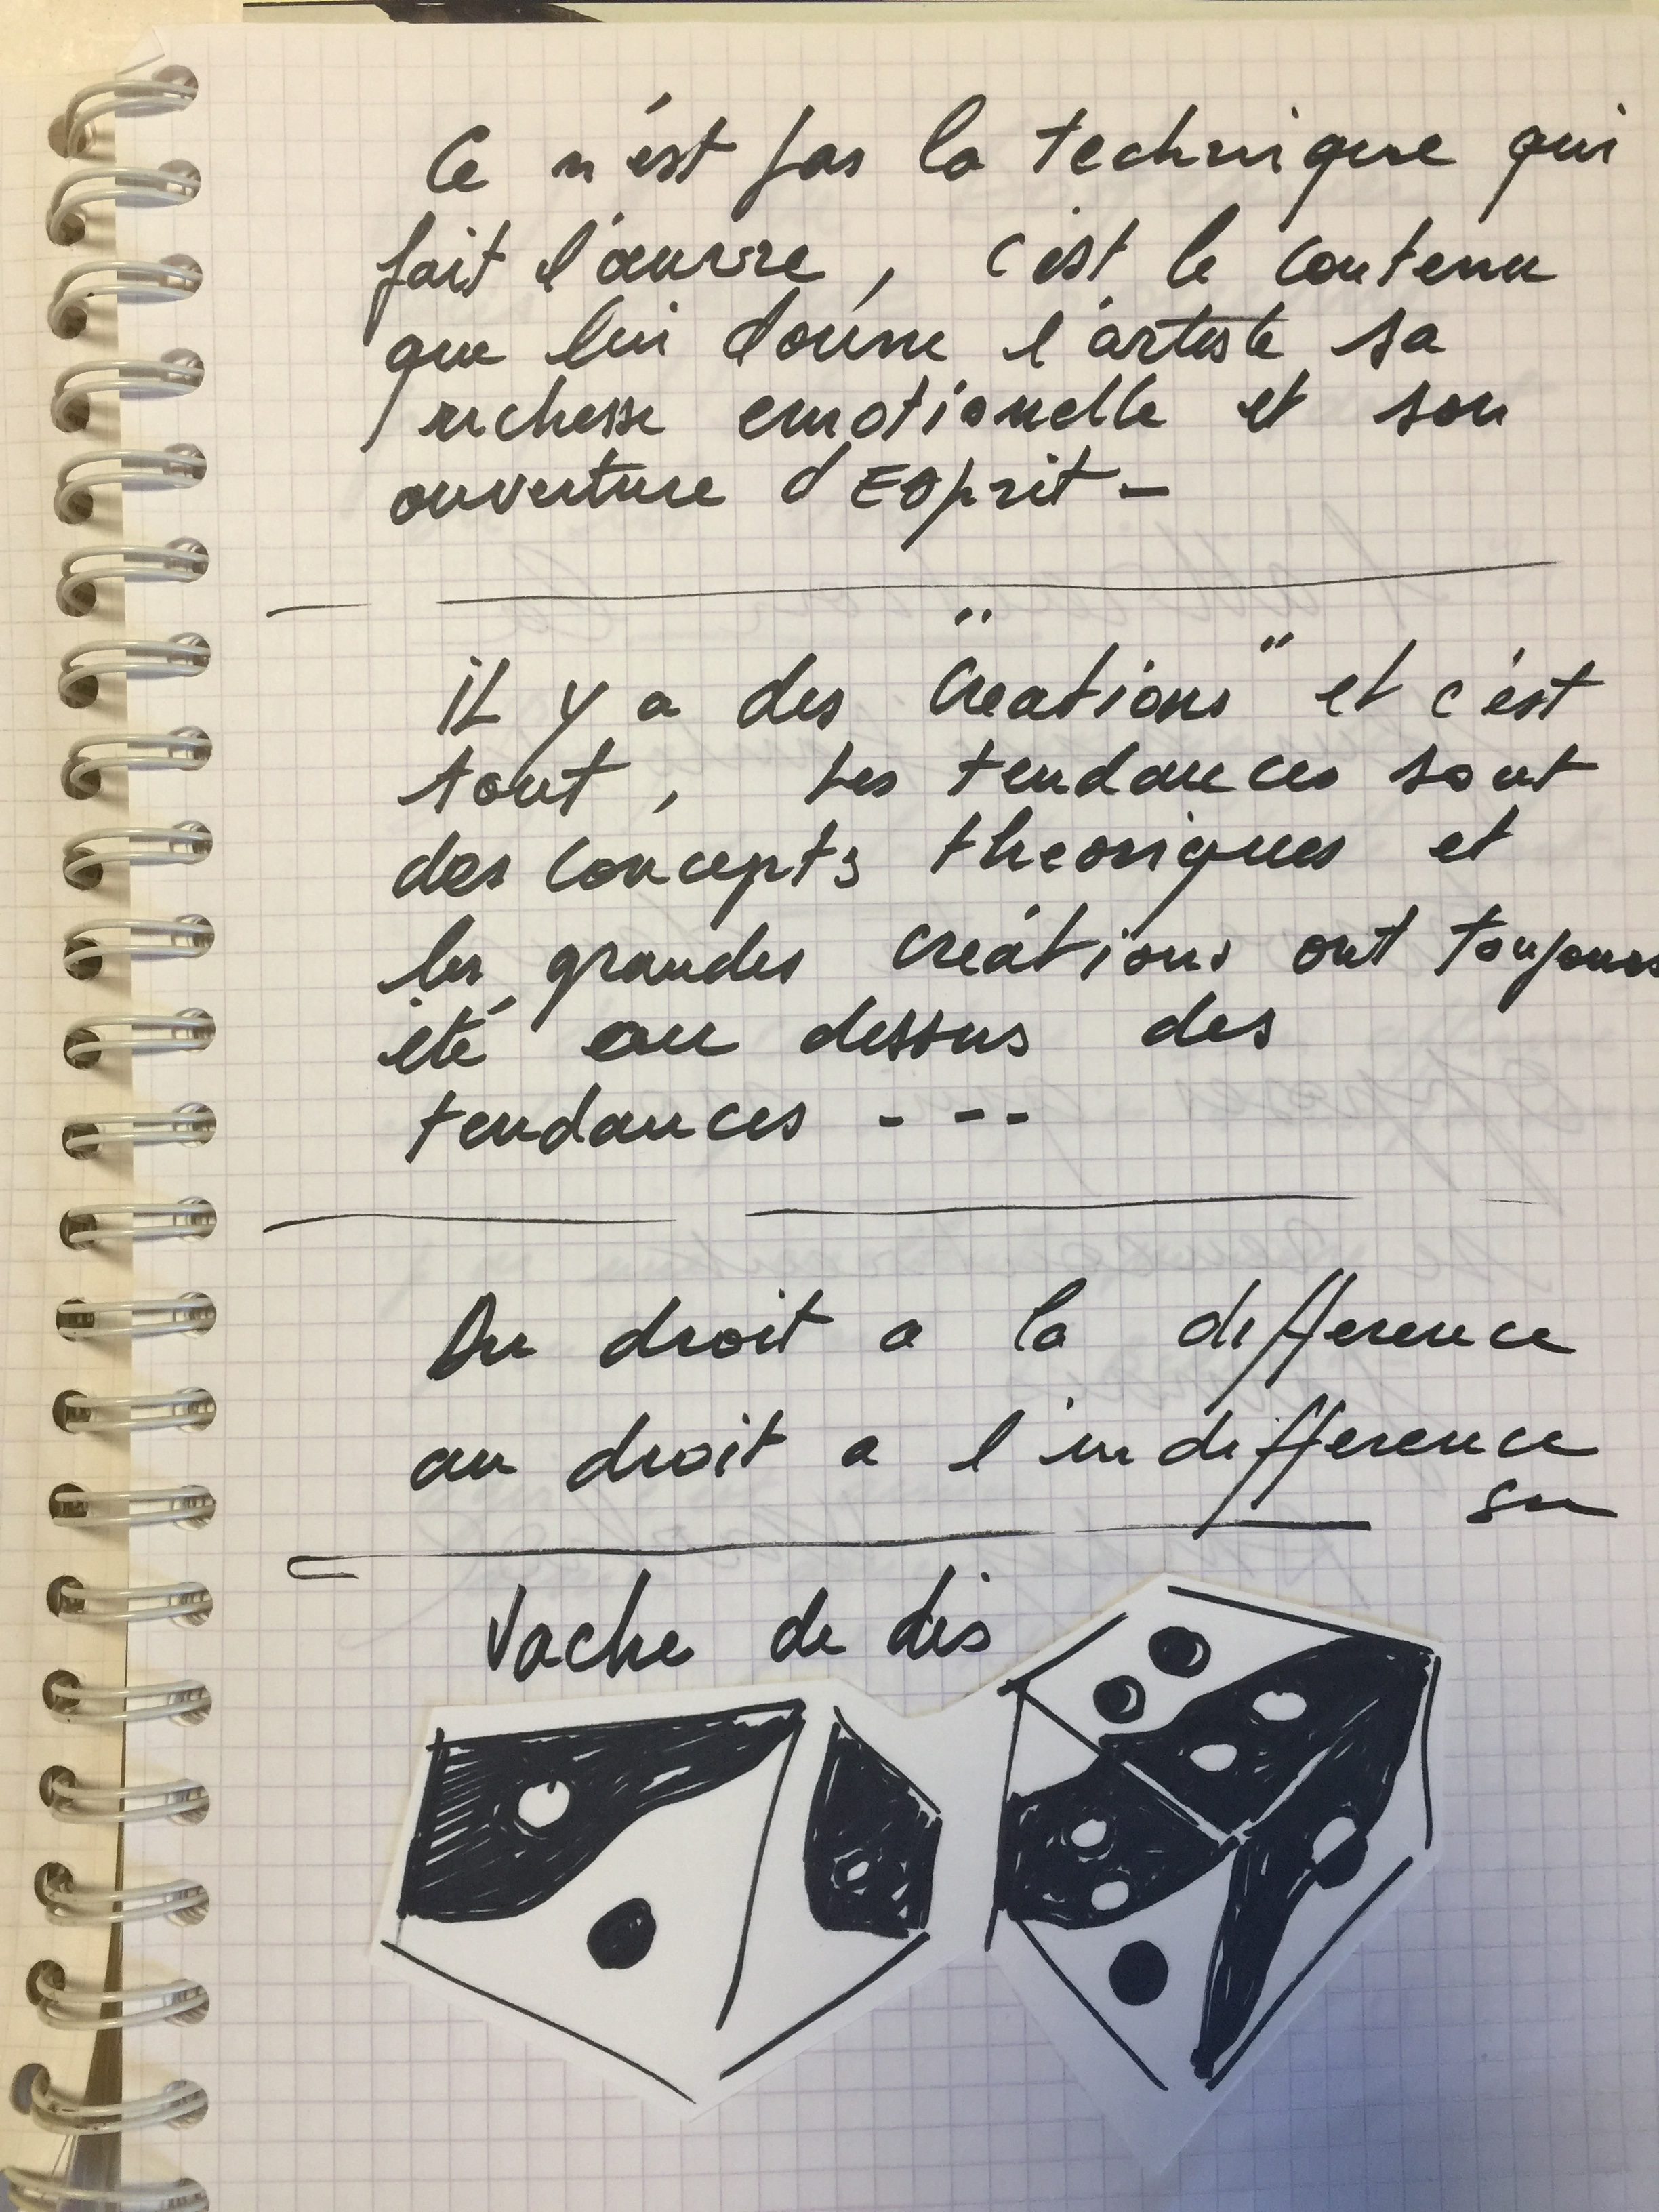 Ce n'ést pas la technique qui
fait l'œuvre, c'est le contenu
que lui donne l'artiste sa
richesse emotionelle et son
ouverture d'ESprit -
iL y a des "Creations" et c'ést
tout, Les tendances sont
des concepts theoriques et
les grandes créations ont toujours
été au dessus des
tendances - - -
Du droit a la difference
au droit a l'indifference
Vache de dés